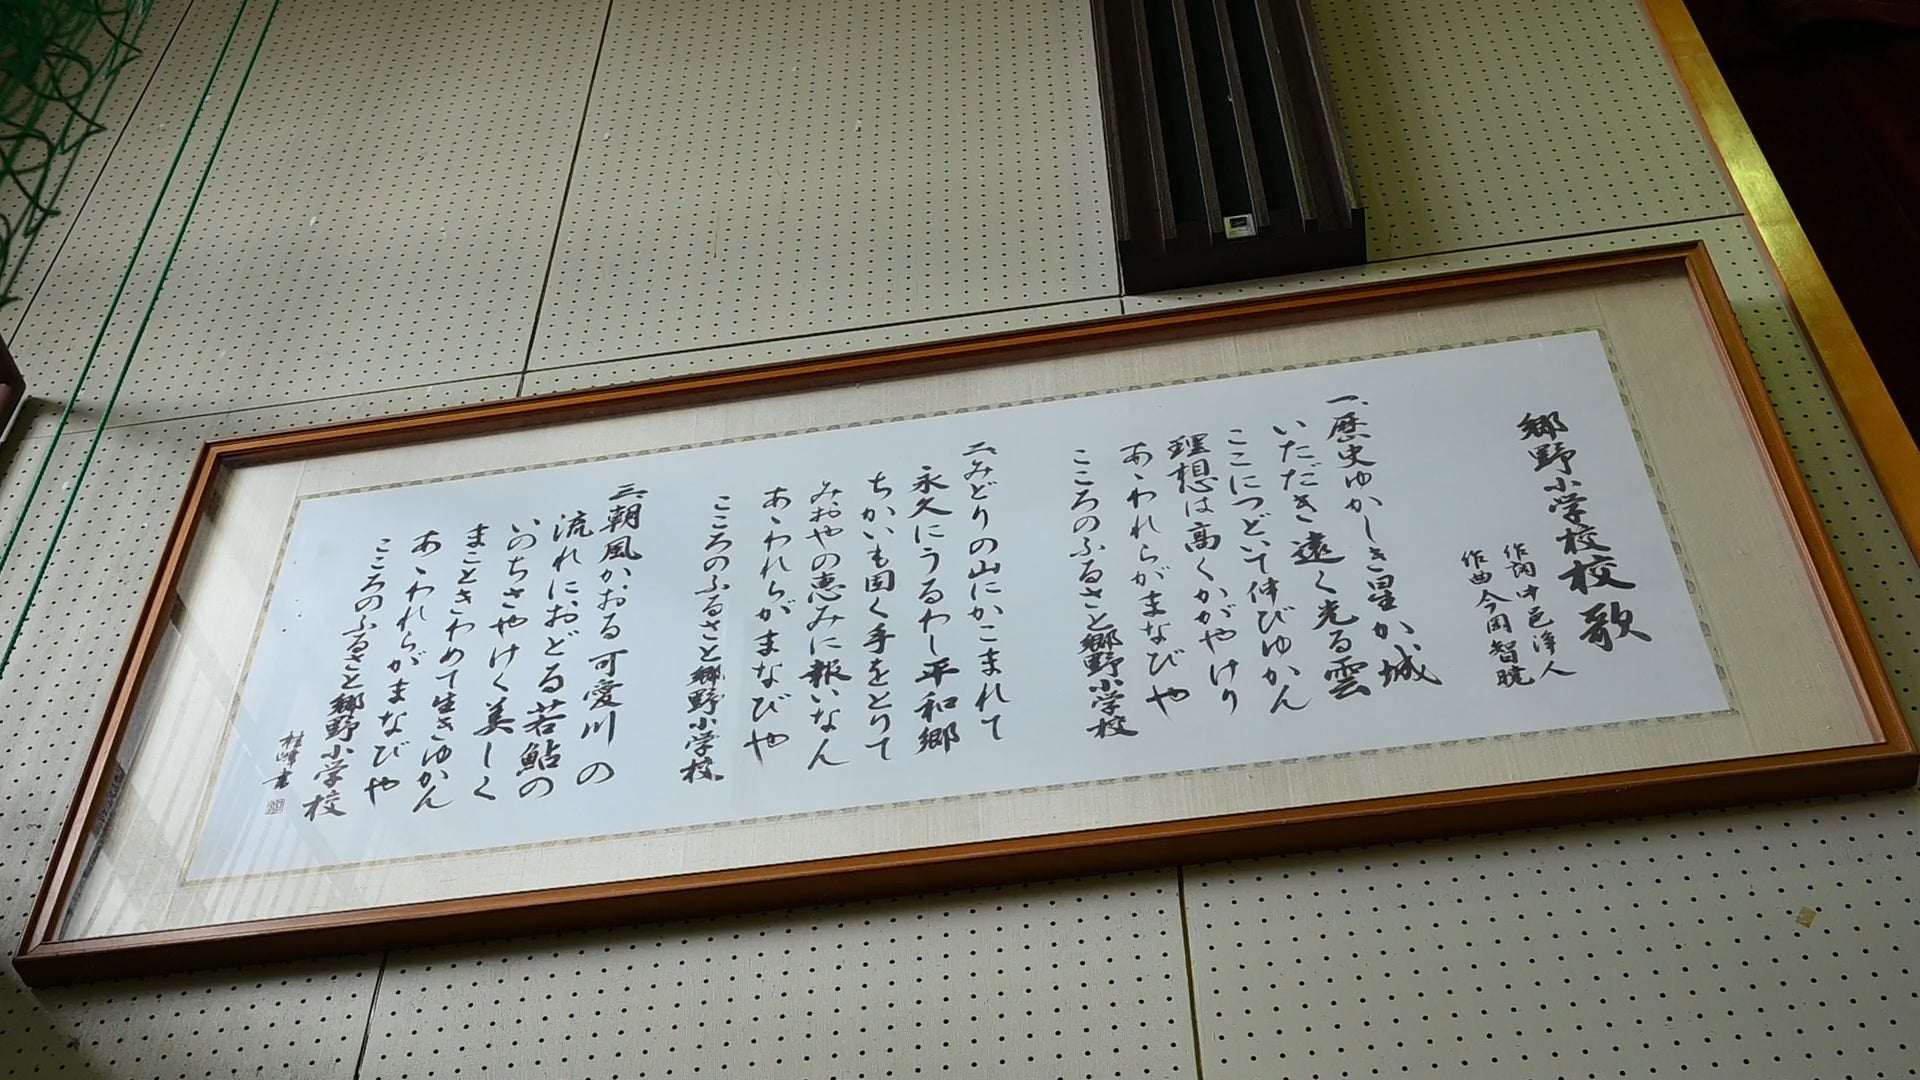 郷野小学校校歌
作詞 中邑浄人
作曲 今岡智暁
一、歴史ゆかしき星か城
いただき遠く光る雲
ここにつどいて伸びゆかん
理想は高くかがやけり
あゝわれらがまなびや
こころのふるさと郷野小学校
二、みどりの山にかこまれて
永久にうるわし平和郷
ちかいも固く手をとりて
みおやの恵みに報いなん
あゝわれらがまなびや
こころのふるさと郷野小学校
三、朝風かおる可愛川の
流れにおどる若鮎の
いのちさやけく美しく
まことさわめて生きゆかん
あゝわれらがまなびや
こころのふるさと郷野小学校
桂峰書